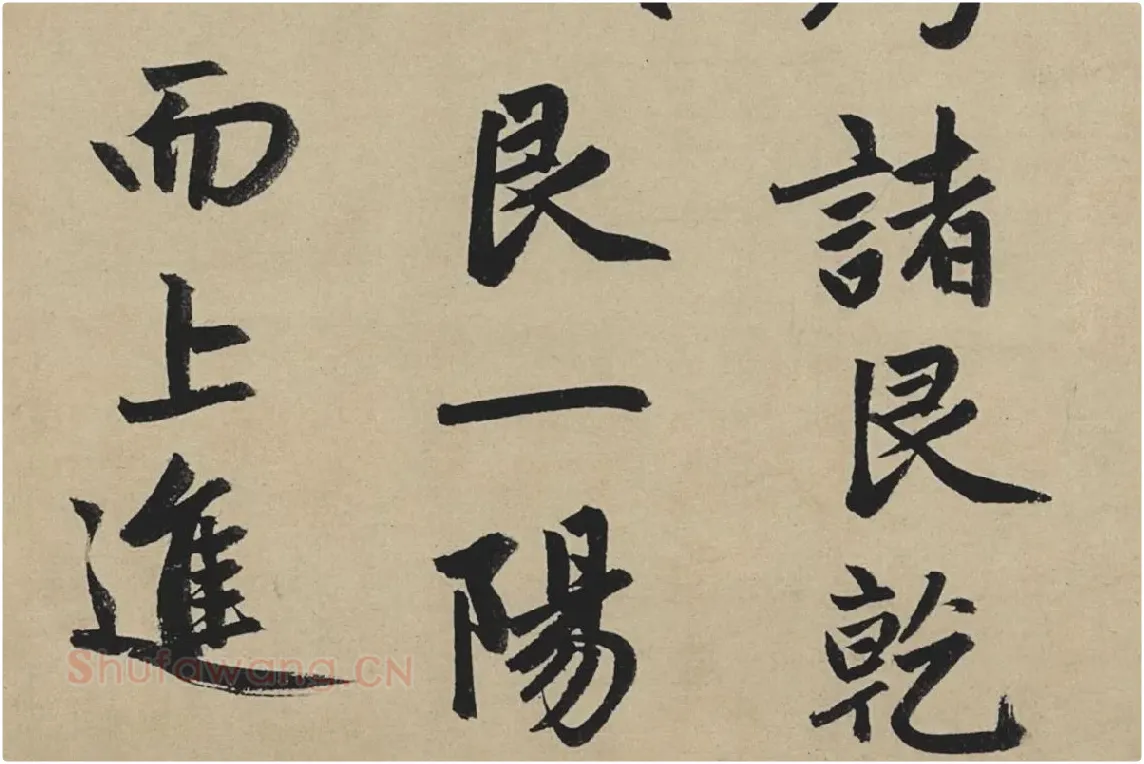 諸艮乾
艮一陽
而上進
Shufawang.CN